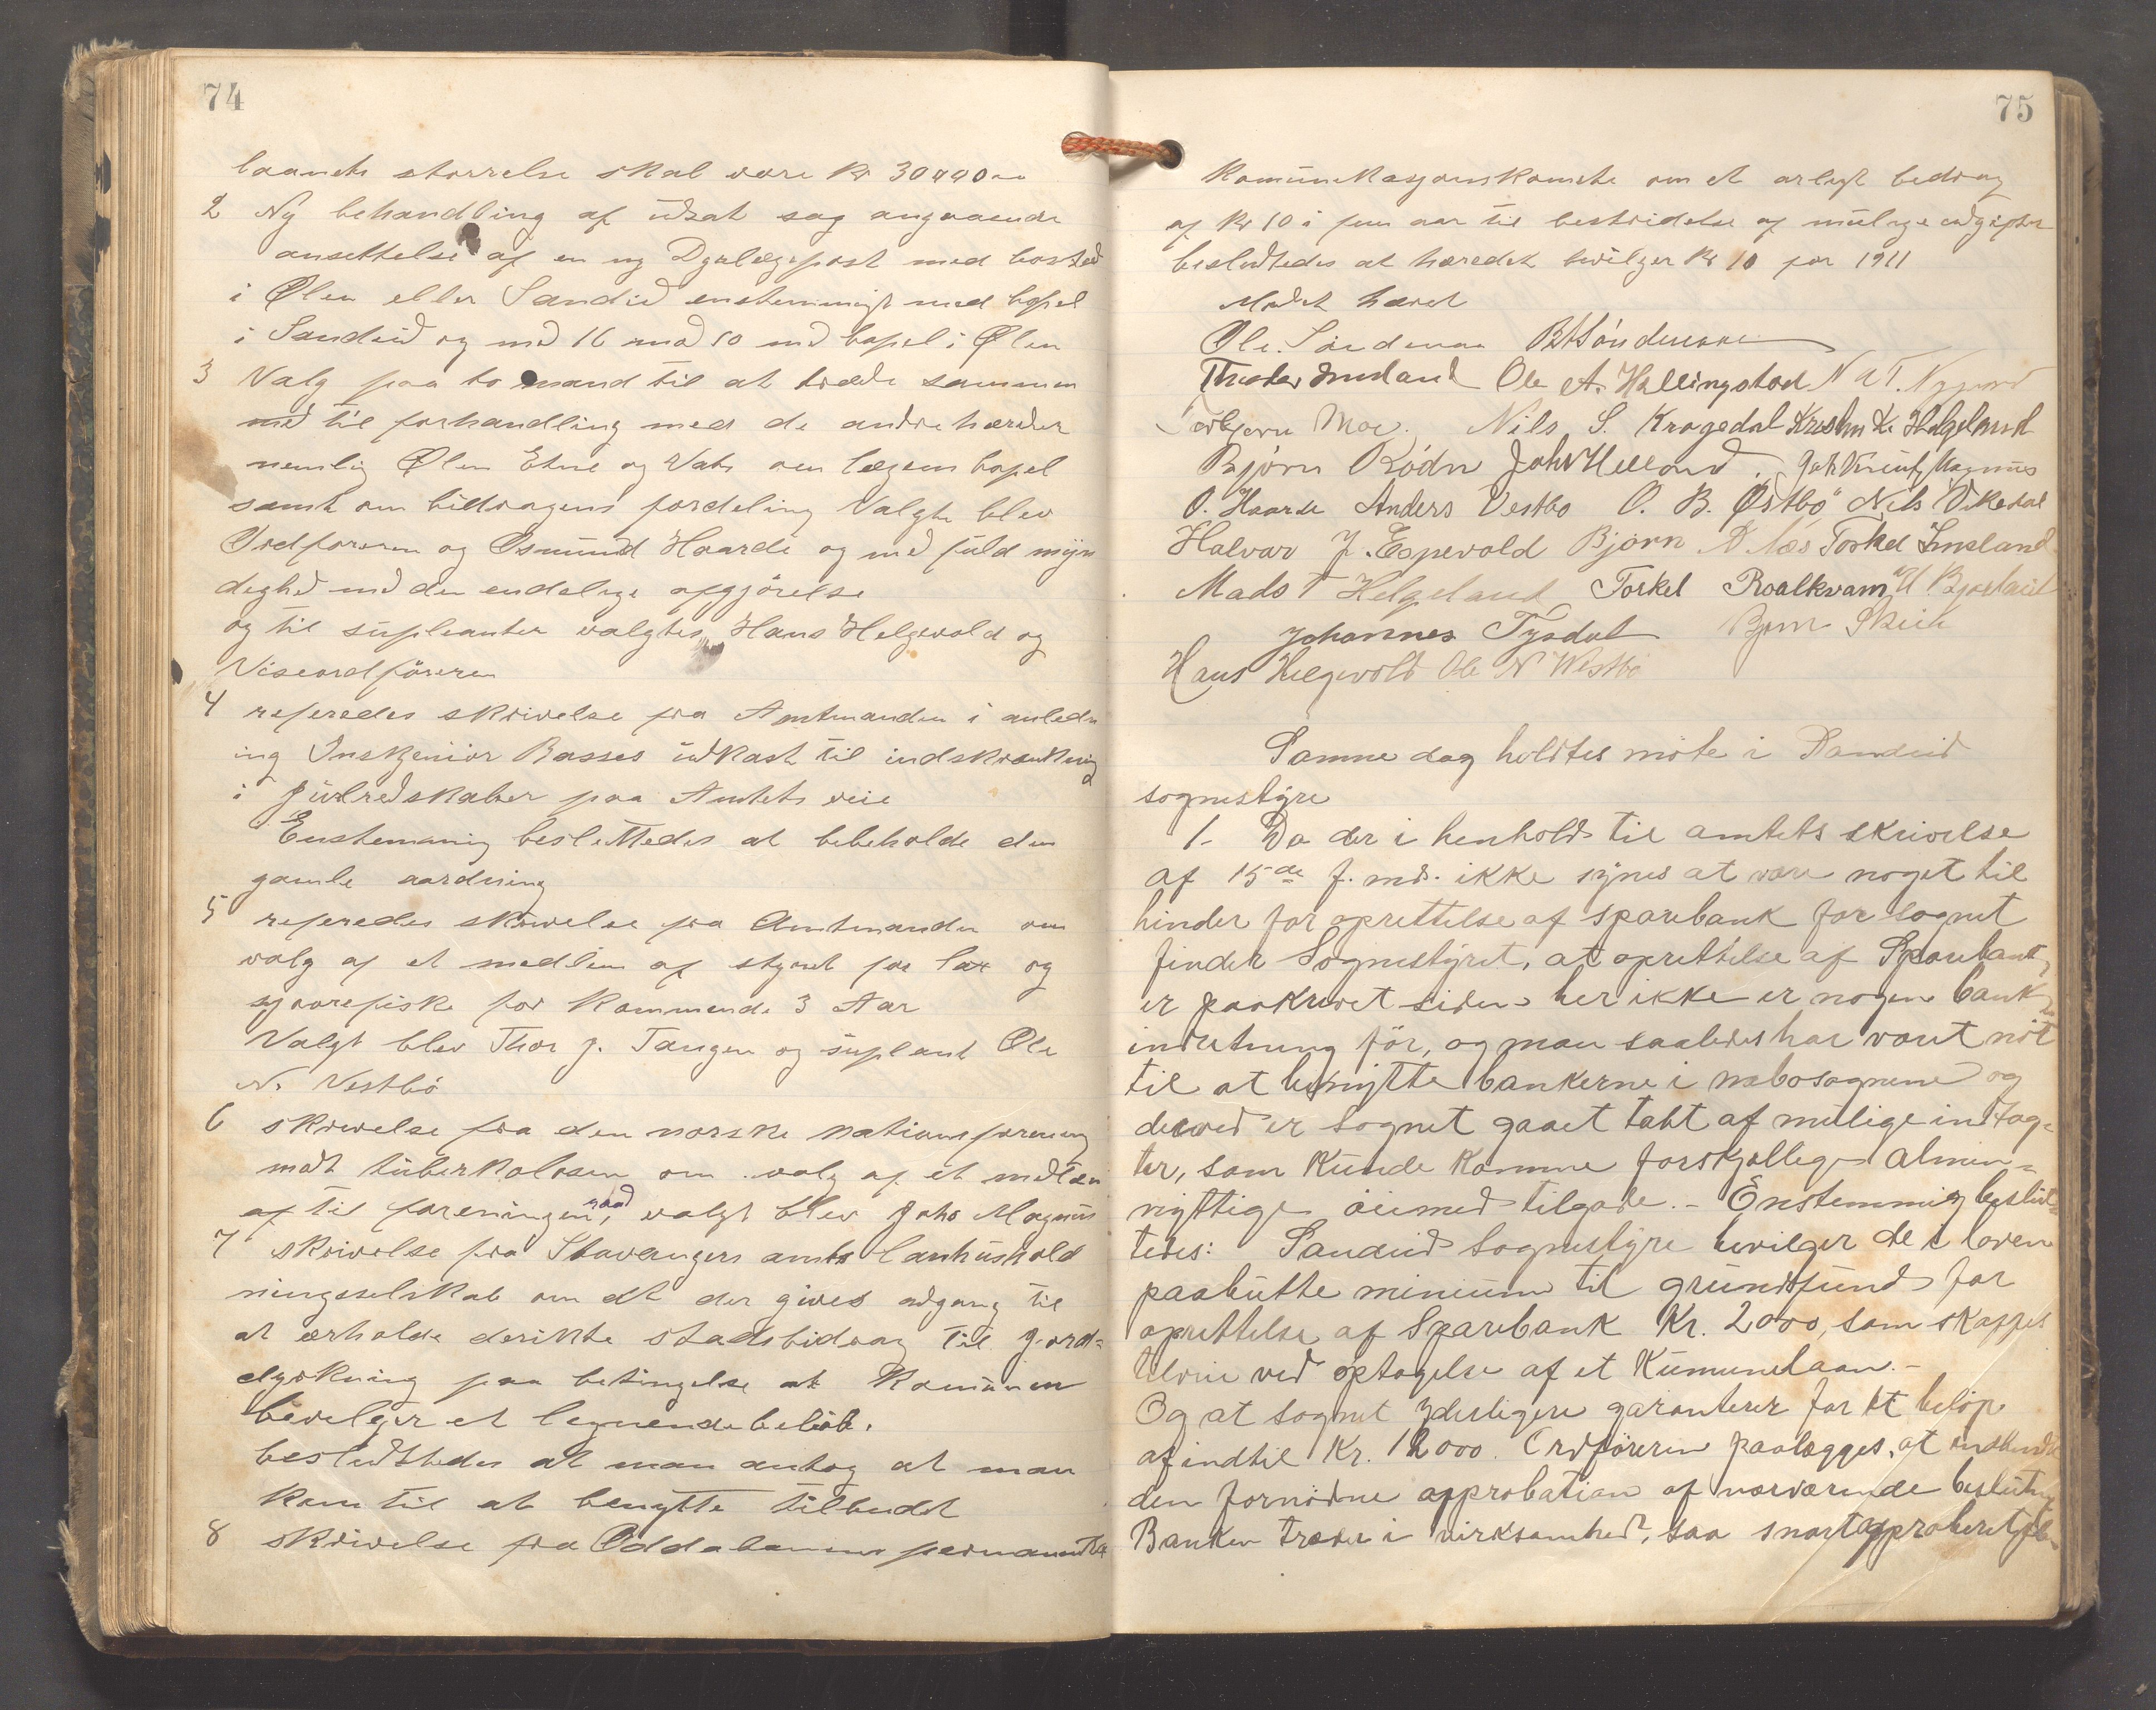 74
laanets storrelse skal være Kr 30000 —
2 Ny behandling af udsat sag angaaende
ansettelse af en ny Dyrlægepost med bosted
i Ølen eller Sandeid enstemmigt med bopel
i Sandeid og med 16 mod 10 med bopel i Ølen
3 Valg paa to mand til at træde sammen
med til forhandling med de andre hærder
nemlig Ølen Etne og Vats om lægens bopel
samt om bidragens fordeling Valgte blev
Ordføreren og Osmund Haarde og med fuld myn
dighed med den endelige afgjörelse
og til supleanter valgtes Hans Helgevold og
Viseordföreren
4 referedes skrivelse fra Amtmanden i anledn
ing Inskjeniör Basses udkast til indskrænkning
i Julredskaber paa Amtets veie
Enstemmig besluttedes at bebeholde den
gamle aardning
5 referedes skrivelse fra Amtmanden om
valg af et medlem af styret for lax og
sjoorefiske for kommende 3 Aar
Valgt blev Thor J. Tangen og suplant Ole
N. Vestbö
6 skrivelse fra den norske nationsforening
mod tuberkolosen om valg af et medlem
af til foreningens raad, valgt blev Johs Magnus
7 skrivelse fra Stavangers amts lanhushold
ningsselskab om at der gives adgang til
at erholde derikte stadsbidrag til jord=
dyrkning paa betingelse at Komunen
bevelger et legnende belöb.
besluttedes at man antog at man
kom til at benytte tilbudet
8 skrivelse fra Oddabanens permanente
75
Komunikasjonskomite om et arligt bedrag
af Kr 10 i fem aar til bestridelse af mulige udgifter
besluttedes at hæredet bevilger Kr 10 for 1911
Mødet hævet
Ole Söndenaa BHSöndenaa
Theodor Imsland Ole A. Hallingstad N a T. Nygaard
Torbjørn Moe. Nils S. Kragedal Kristen K. Helgeland
Björn Rödn Joh Helland. Joh Knut Magnus
O. Haarde Anders Vestbø O. B. Østbö Nils Vikedal
Halvar J. Espevold Bjørn N Næs Torkel Imsland
Mads T Helgeland Torkel Roalkvam
Johannes Tysdal Bjørn Skeie
Hans Helgevold Ole N Westbö
Samme dag holdtes möte i Sandeid
sognestyre
1. Da der i henhold til amtets skrivelse
af 15de f. md. ikke synes at være noget til
hinder for oprettelse af sparebank for sognet
finder Sognestyret, at oprettelse af Sparebank
er paakrævet siden her ikke er nogen bank
indretning för, og man saaledes har vært nöt
til at benytte bankerne i nabosognene og
derved er sognet gaaet tabt af mulige indtæg=
ter, som kunde komme forskjellige almen=
nyttige öiemed tilgode. – Enstemmig beslut=
tedes: Sandeid Sognestyre bevilger de i loven
paabutte minium til grundfund for
oprettelse af Sparebank Kr. 2000, som skaffes
tilveie ved optagelse af et Kumunelaan. –
Og at sognet yderligere garanterer for et belöp
af indtil Kr. 12000. Ordföreren paalægges, at indsende
den fornödne approbation af nærværende beslutning
Banken træder i virksomhed, saa snart approberet